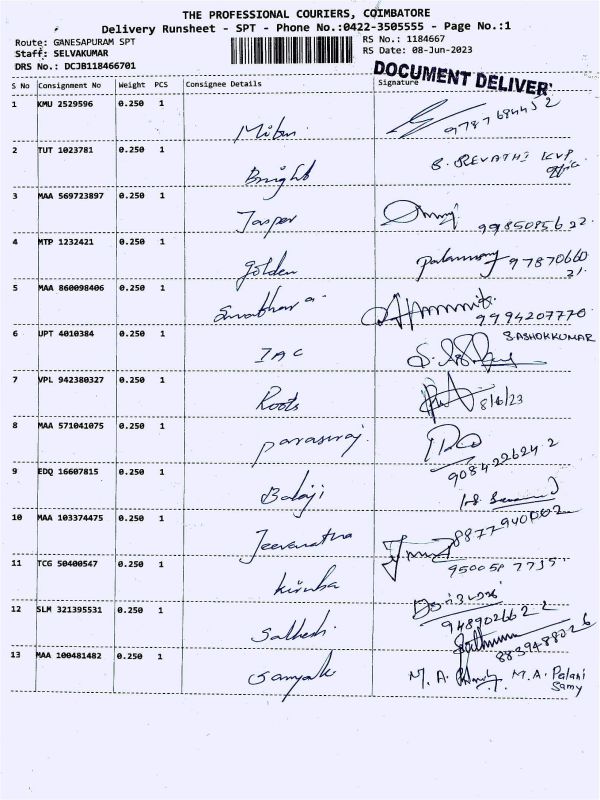 THE PROFESSIONAL COURIERS, COIMBATORE
Delivery Runsheet - SPT - Phone No.:0422-3505555 - Page No.:1
Route: GANESAPURAM SPT
RS No.: 1184667
Staff: SELVAKUMAR
RS Date: 08-Jun-2023
DRS No.: DCJB118466701
DOCUMENT DELIVER
S No Consignment No Weight PCS Consignee Details Signature
1 KMU 2529596 0.250 1
Mitun
2 TUT 1023781 0.250 1
Bright
B. REVATHI KVP
3 MAA 569723897 0.250 1
Jasper
4 MTP 1232421 0.250 1
golden
5 MAA 860098406 0.250 1
9994207770
6 UPT 4010384 0.250 1 S. ASHOKKUMAR
IAC
7 VPL 942380327 0.250 1
Roots 8/6/23
8 MAA 571041075 0.250 1
parasuraj
9084226242
9 EDQ 16607815 0.250 1
Balaji
10 MAA 103374475 0.250 1 8877940002
11 TCG 50400547 0.250 1
kiruba
12 SLM 321395531 0.250 1
8839488026
13 MAA 100481482 0.250 1
M. A. Palani
Samy